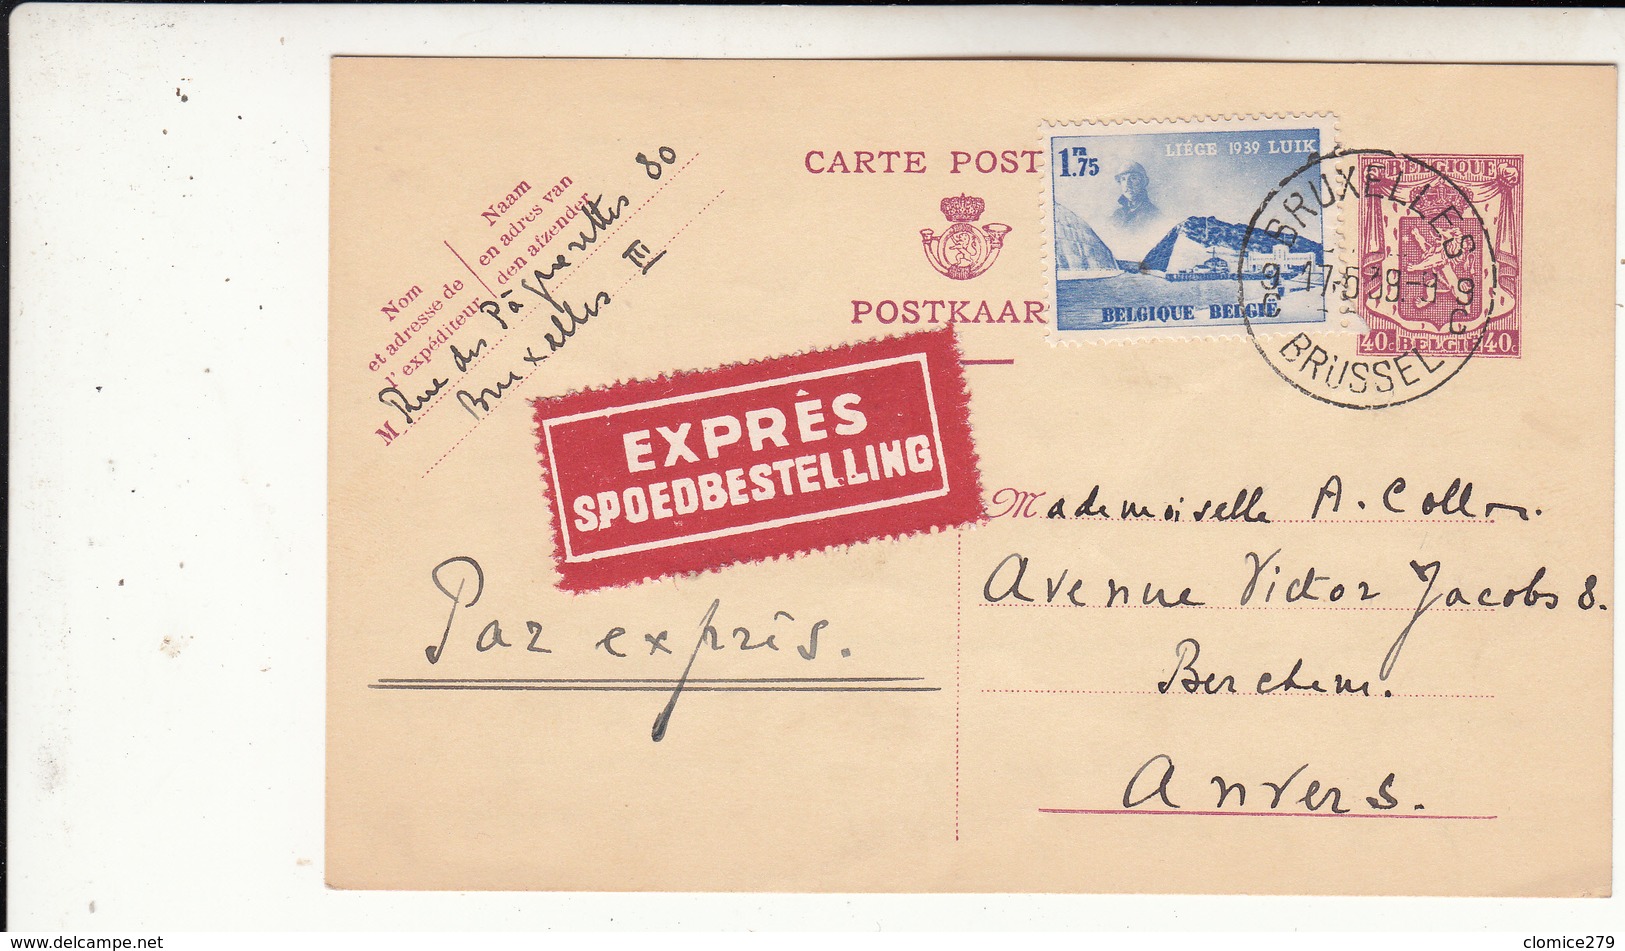 CARTE POST
POSTKAAR
Nom
et adresse de
l'expéditeur
Naam
en adres van
den afzender
M Rue des Pâquerettes 80
Bruxelles III
1 FR 75
LIÉGE 1939 LUIK
BELGIQUE BELGIË
BELGIQUE
40c BELGIË 40c
BRUXELLES
BRUSSEL
EXPRÊS
SPOEDBESTELLING
Par exprès.
Mademoiselle A. Collon.
Avenue Victor Jacobs 8.
Berchem.
Anvers.
www.delcampe.net
clomice279